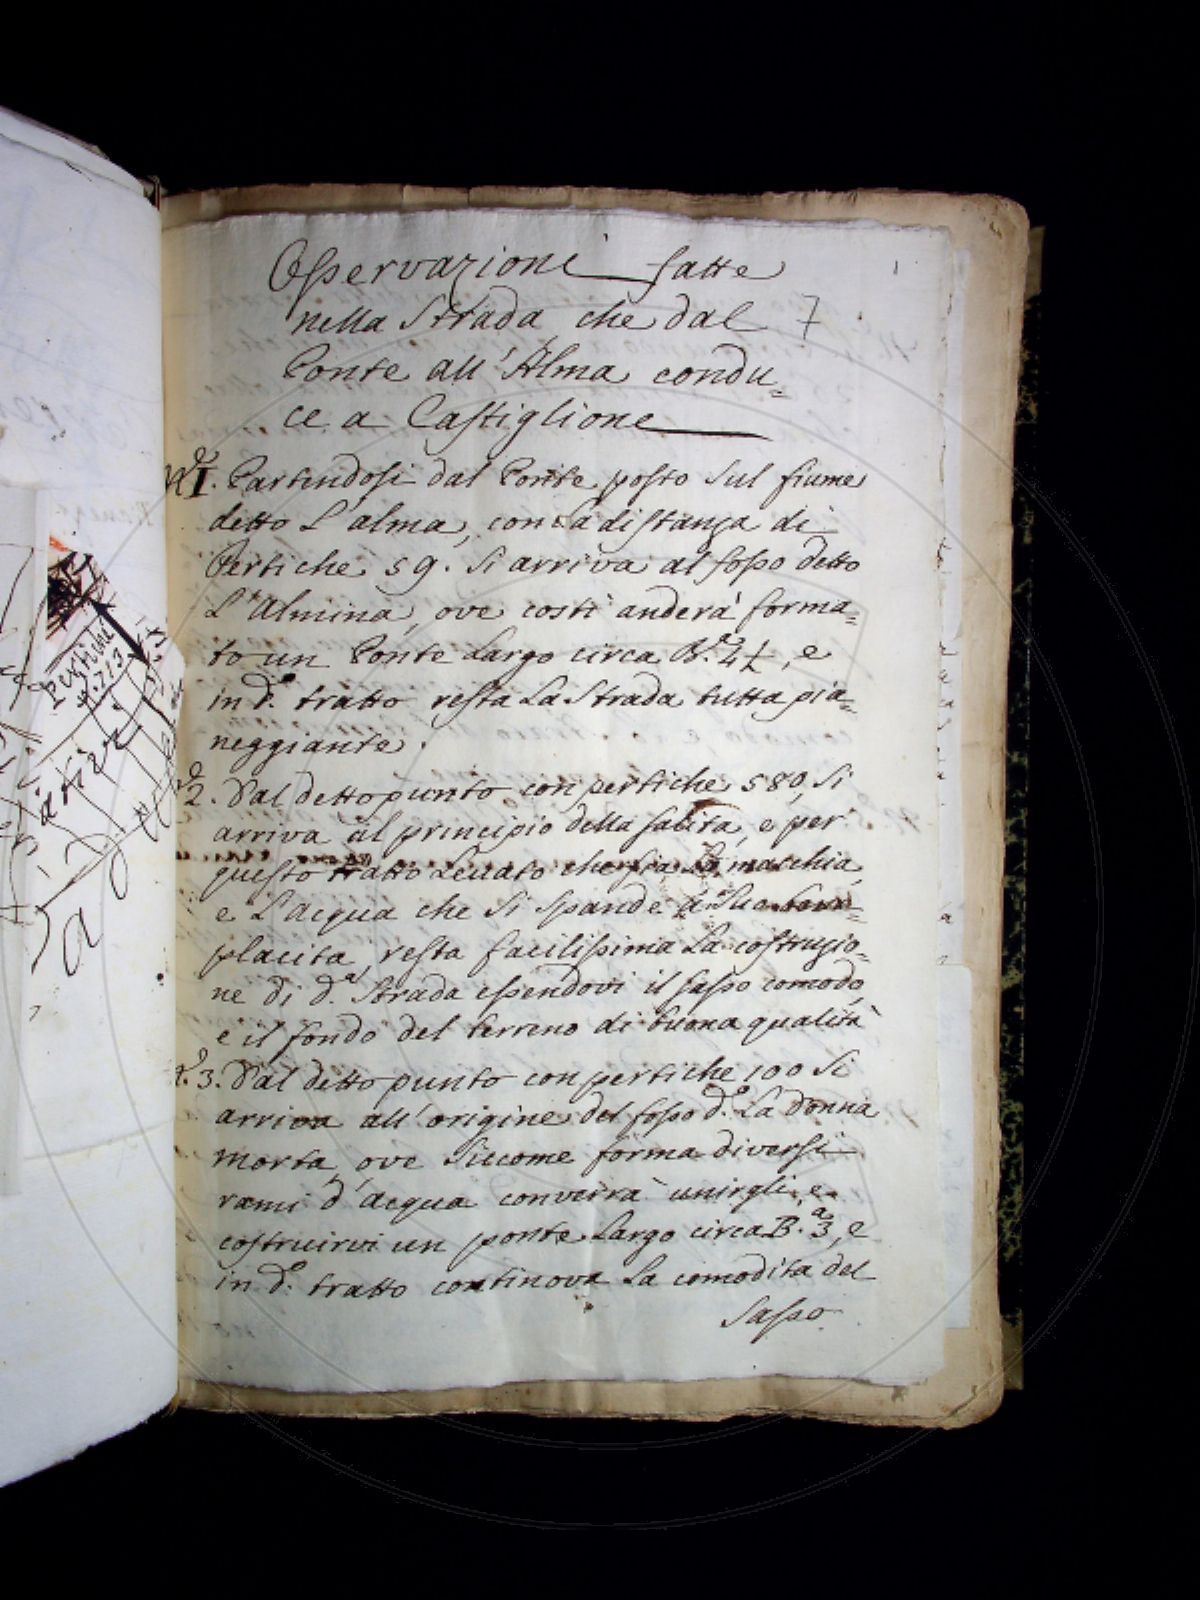 Osservazioni fatte
nella Strada che dal 7
Ponte all'Alma condu=
ce a Castiglione
N.º 1. Partendosi dal Ponte posto sul fiume
detto L'alma, con la distanza di
Pertiche 59. si arriva al fosso detto
L'Almina, ove costì anderà forma=
to un Ponte Largo circa B.ª 4½, e
in d.º tratto resta La Strada tutta pia=
neggiante.
2. Dal detto punto con pertiche 580, si
arriva al principio della salita, e per
questo tratto Levato che sia La macchia,
e L'acqua che si spande a Sua bene=
placita resta facilissima La costruzio=
ne di d.ª Strada essendovi il sasso comodo,
e il fondo del terreno di buona qualità
3. Dal detto punto con pertiche 100 si
arriva all'origine del fosso d.º La donna
morta, ove siccome forma diversi
rami d'acqua converrà unirgli, e
costruirvi un ponte Largo circa B.ª 3, e
in d.º tratto continova La comodità del
Sasso
pertiche